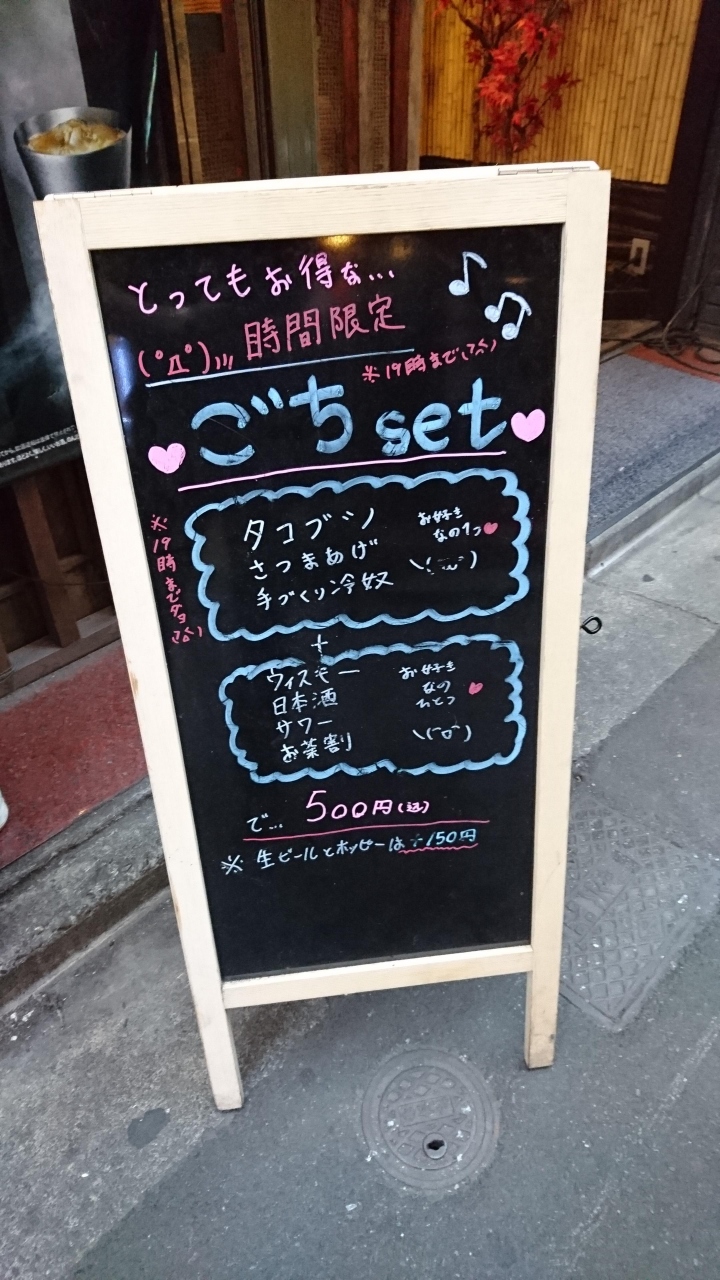 とってもお得な...
(°Д°))) 時間限定
※19時まで(^^)
ごち set
※19時までダヨ(^^)
タコブツ
さつまあげ
手づくり冷奴
お好き
なの1つ
+
ウィスキー
日本酒
サワー
お茶割
お好き
なの
ひとつ
で... 500円(込)
※生ビールとホッピーは+150円